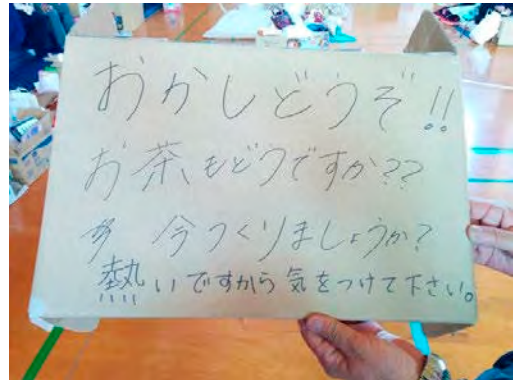 おかしどうぞ!!
お茶もどうですか??
今つくりましょうか?
熱いですから気をつけて下さい。